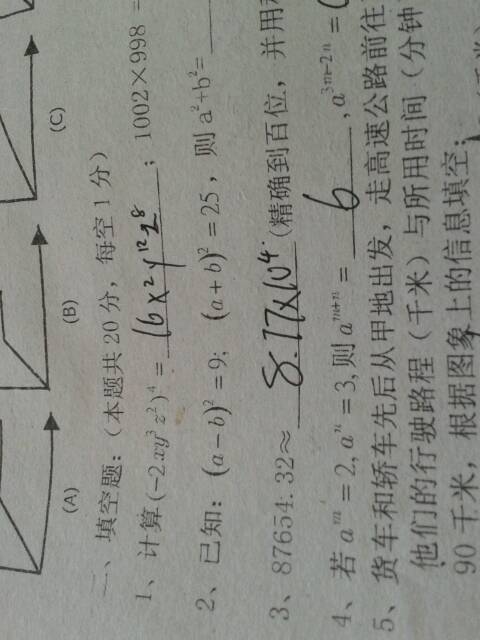 (A) (B) (C)
二、填空题：（本题共20分，每空1分）
1、计算(-2xy³z²)⁴＝16x²y¹²z⁸；1002×998＝
2、已知：(a-b)²＝9；(a+b)²＝25，则a²+b²＝
3、87654.32≈8.77×10⁴（精确到百位，并用
4、若aᵐ＝2,aⁿ＝3,则aᵐ⁺ⁿ＝6,a³ᵐ⁻²ⁿ＝
5、货车和轿车先后从甲地出发，走高速公路前往
他们的行驶路程（千米）与所用时间（分钟
90千米，根据图象上的信息填空：